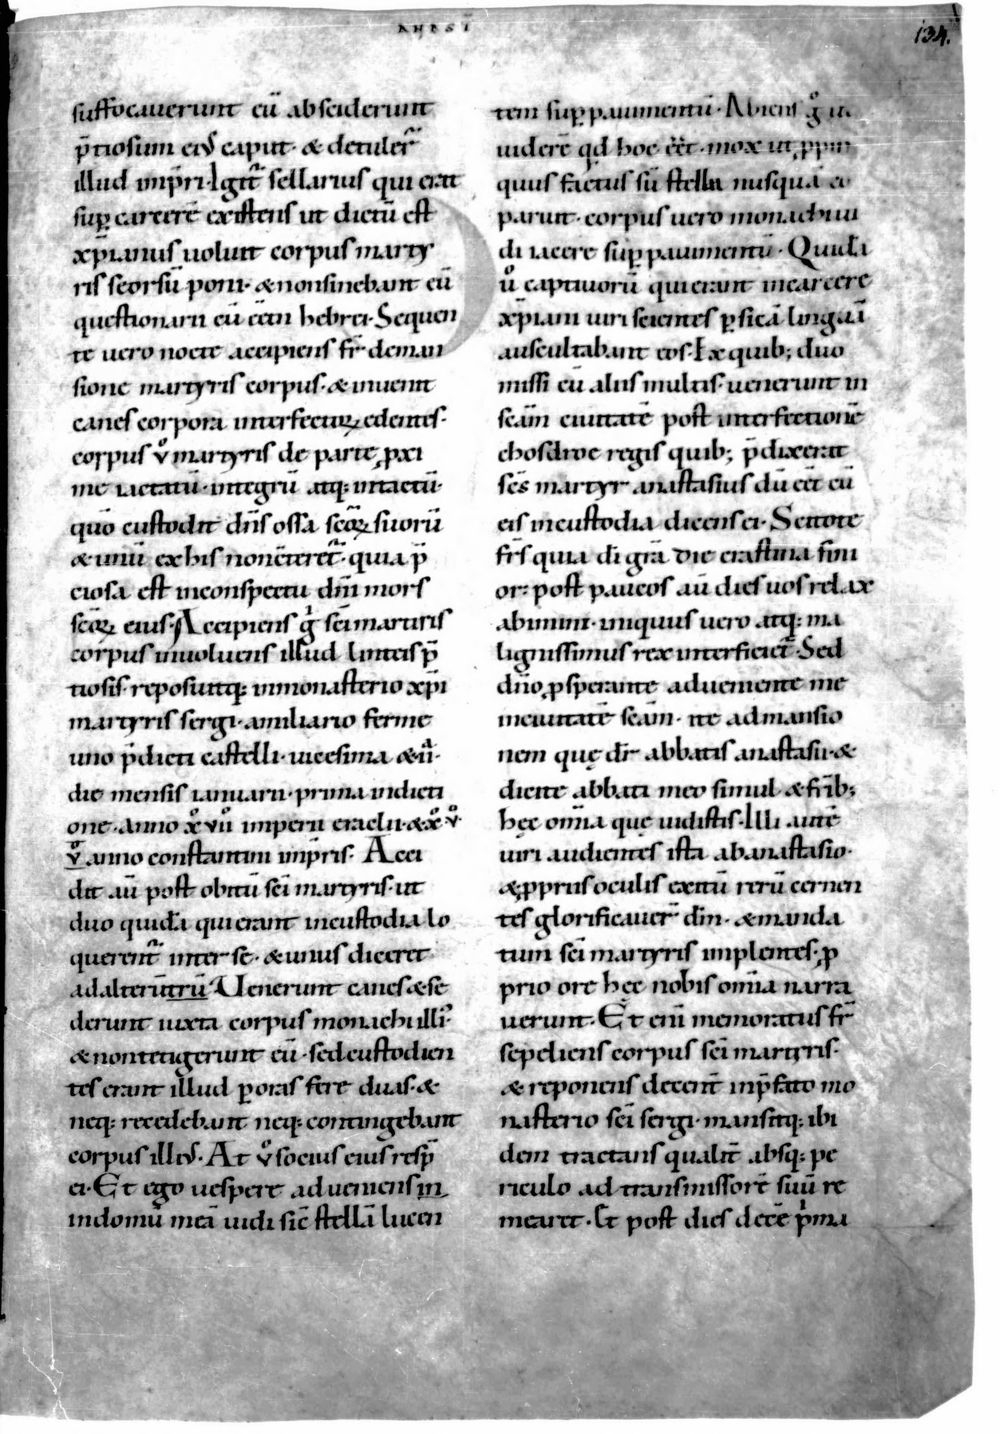 ANAST̄
134.
suffocauerunt eū absciderunt
p̄tiosum eiꝰ caput· & detuler̄
illud imp̄ri· Igit̄ sellarius qui erat
sup̱ carcerē existens ut dictū est
xp̄ianus uoluit corpus marty
ris seorsū poni· & non sinebant eū
questionarii eū cētī hebrei· Sequen
te uero nocte accipiens fr̄ de man
sione martyris corpus· & inuenit
canes corpora interfectoꝝ edentes·
corpus v̊ martyris de parte ꝓxi
me iactatū· integrū atq: intactū·
quo custodit dn̄s ossa sc̄oꝝ suorū
& unū ex his non c̄teret̄· quia p̄
ciosa est in conspectu dn̄i mors
sc̄oꝝ eius· Accipiens g̊ sc̄i martiris
corpus inuoluens illud linteis p̄
tiosis· reposuitq: in monasterio xp̄i
martyris sergi· a miliario ferme
uno p̄dicti castelli· uicesima & ii·
die mensis ianuarii· prima indicti
one· anno x̊ vii̊ imperii eraclii· & x̊ v̊
v̊ anno constantini imp̄ris· Acci
dit aū post obitū sc̄i martyris· ut
duo quidā qui erant in custodia lo
querent̄ inter se· & unus diceret
ad alterūtrū· Uenerunt canes & se
derunt iuxta corpus monachi illiꝰ·
& non tetigerunt eū· sed custodien
tes erant illud ꝑ oras fere duas· &
neq: recedebant neq: contingebant
corpus illiꝰ· At v̊ socius eius resp̄
ei· Et ego uespere adueniens in
in domū meā uidi sic̄ stellā lucen
tem sup̱ pauimentū· Abiens g̊ ut
uiderē qd hoc ēēt· mox ut ꝓpin
quus factus sū stella nusquā
paruit· corpus uero monachi ui
di iacere sup̱ pauimentū· Quidā
ů captiuorū qui erant in carcere
xp̄iani uiri scientes ꝑsicā linguā
auscultabant eos· Ex quib; duo
missi cū aliis multis· uenerunt in
sc̄am ciuitatē post interfectionē
chosdroe regis quib; p̄dixerat
sc̄s martyr anastasius dū eēt cū
eis in custodia dicens ei· Scitote
fr̄s quia dī grā die crastina fini
or: post paucos aū dies uos relax
abimini· iniquus uero atq: ma
lignissimus rex interficiet̄· Sed
dn̄o ꝓsperante adueniente me
in ciuitatē sc̄am· ite ad mansio
nem quę dr̄ abbatis anastasii· &
dicite abbati meo simul & fr̄ib;
hęc om̄ia quę uidistis· Illi autē
uiri audientes ista ab anastasio·
& ꝓpriis oculis exitū rerū cernen
tes glorificauer̄ dm̄· & manda
tum sc̄i martyris implentes· ꝓ
prio ore hęc nobis om̄ia narra
uerunt· Et eni memoratus fr̄
sepeliens corpus sc̄i martyris·
& reponens decent̄ in p̄fato mo
nasterio sc̄i sergi· mansitq: ibi
dem tractans qualit̄ absq: pe
riculo ad transmissorē suū re
mearet· Et post dies decē p̓ma